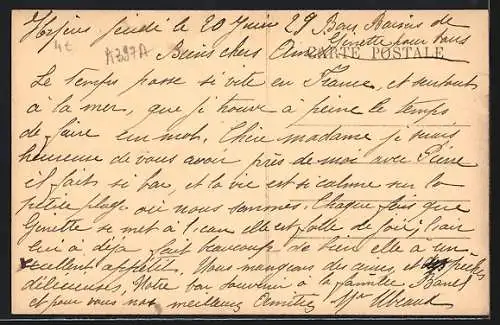 jeudi le 20 Juin 29 Bons Baisers de
Ginette pour vous
4€ A397A
Biens chers Amis CARTE POSTALE
Le Temps passe si vite en France, et surtout
à la mer, que je trouve à peine le temps
de faire un mot. Chère madame je suis
heureuse de vous avoir près de moi avec Pierre
il fait si bon, et la vie est si calme sur la
petite plage où nous sommes. Chaque fois que
Ginette se met à l'eau elle est folle de joie; l'air
lui a déjà fait beaucoup de bien elle a un
excellent appétit. Nous mangeons des et des pêches
délicieuses, Notre bon souvenir à la famille
et pour vous nos meilleures Amitiés